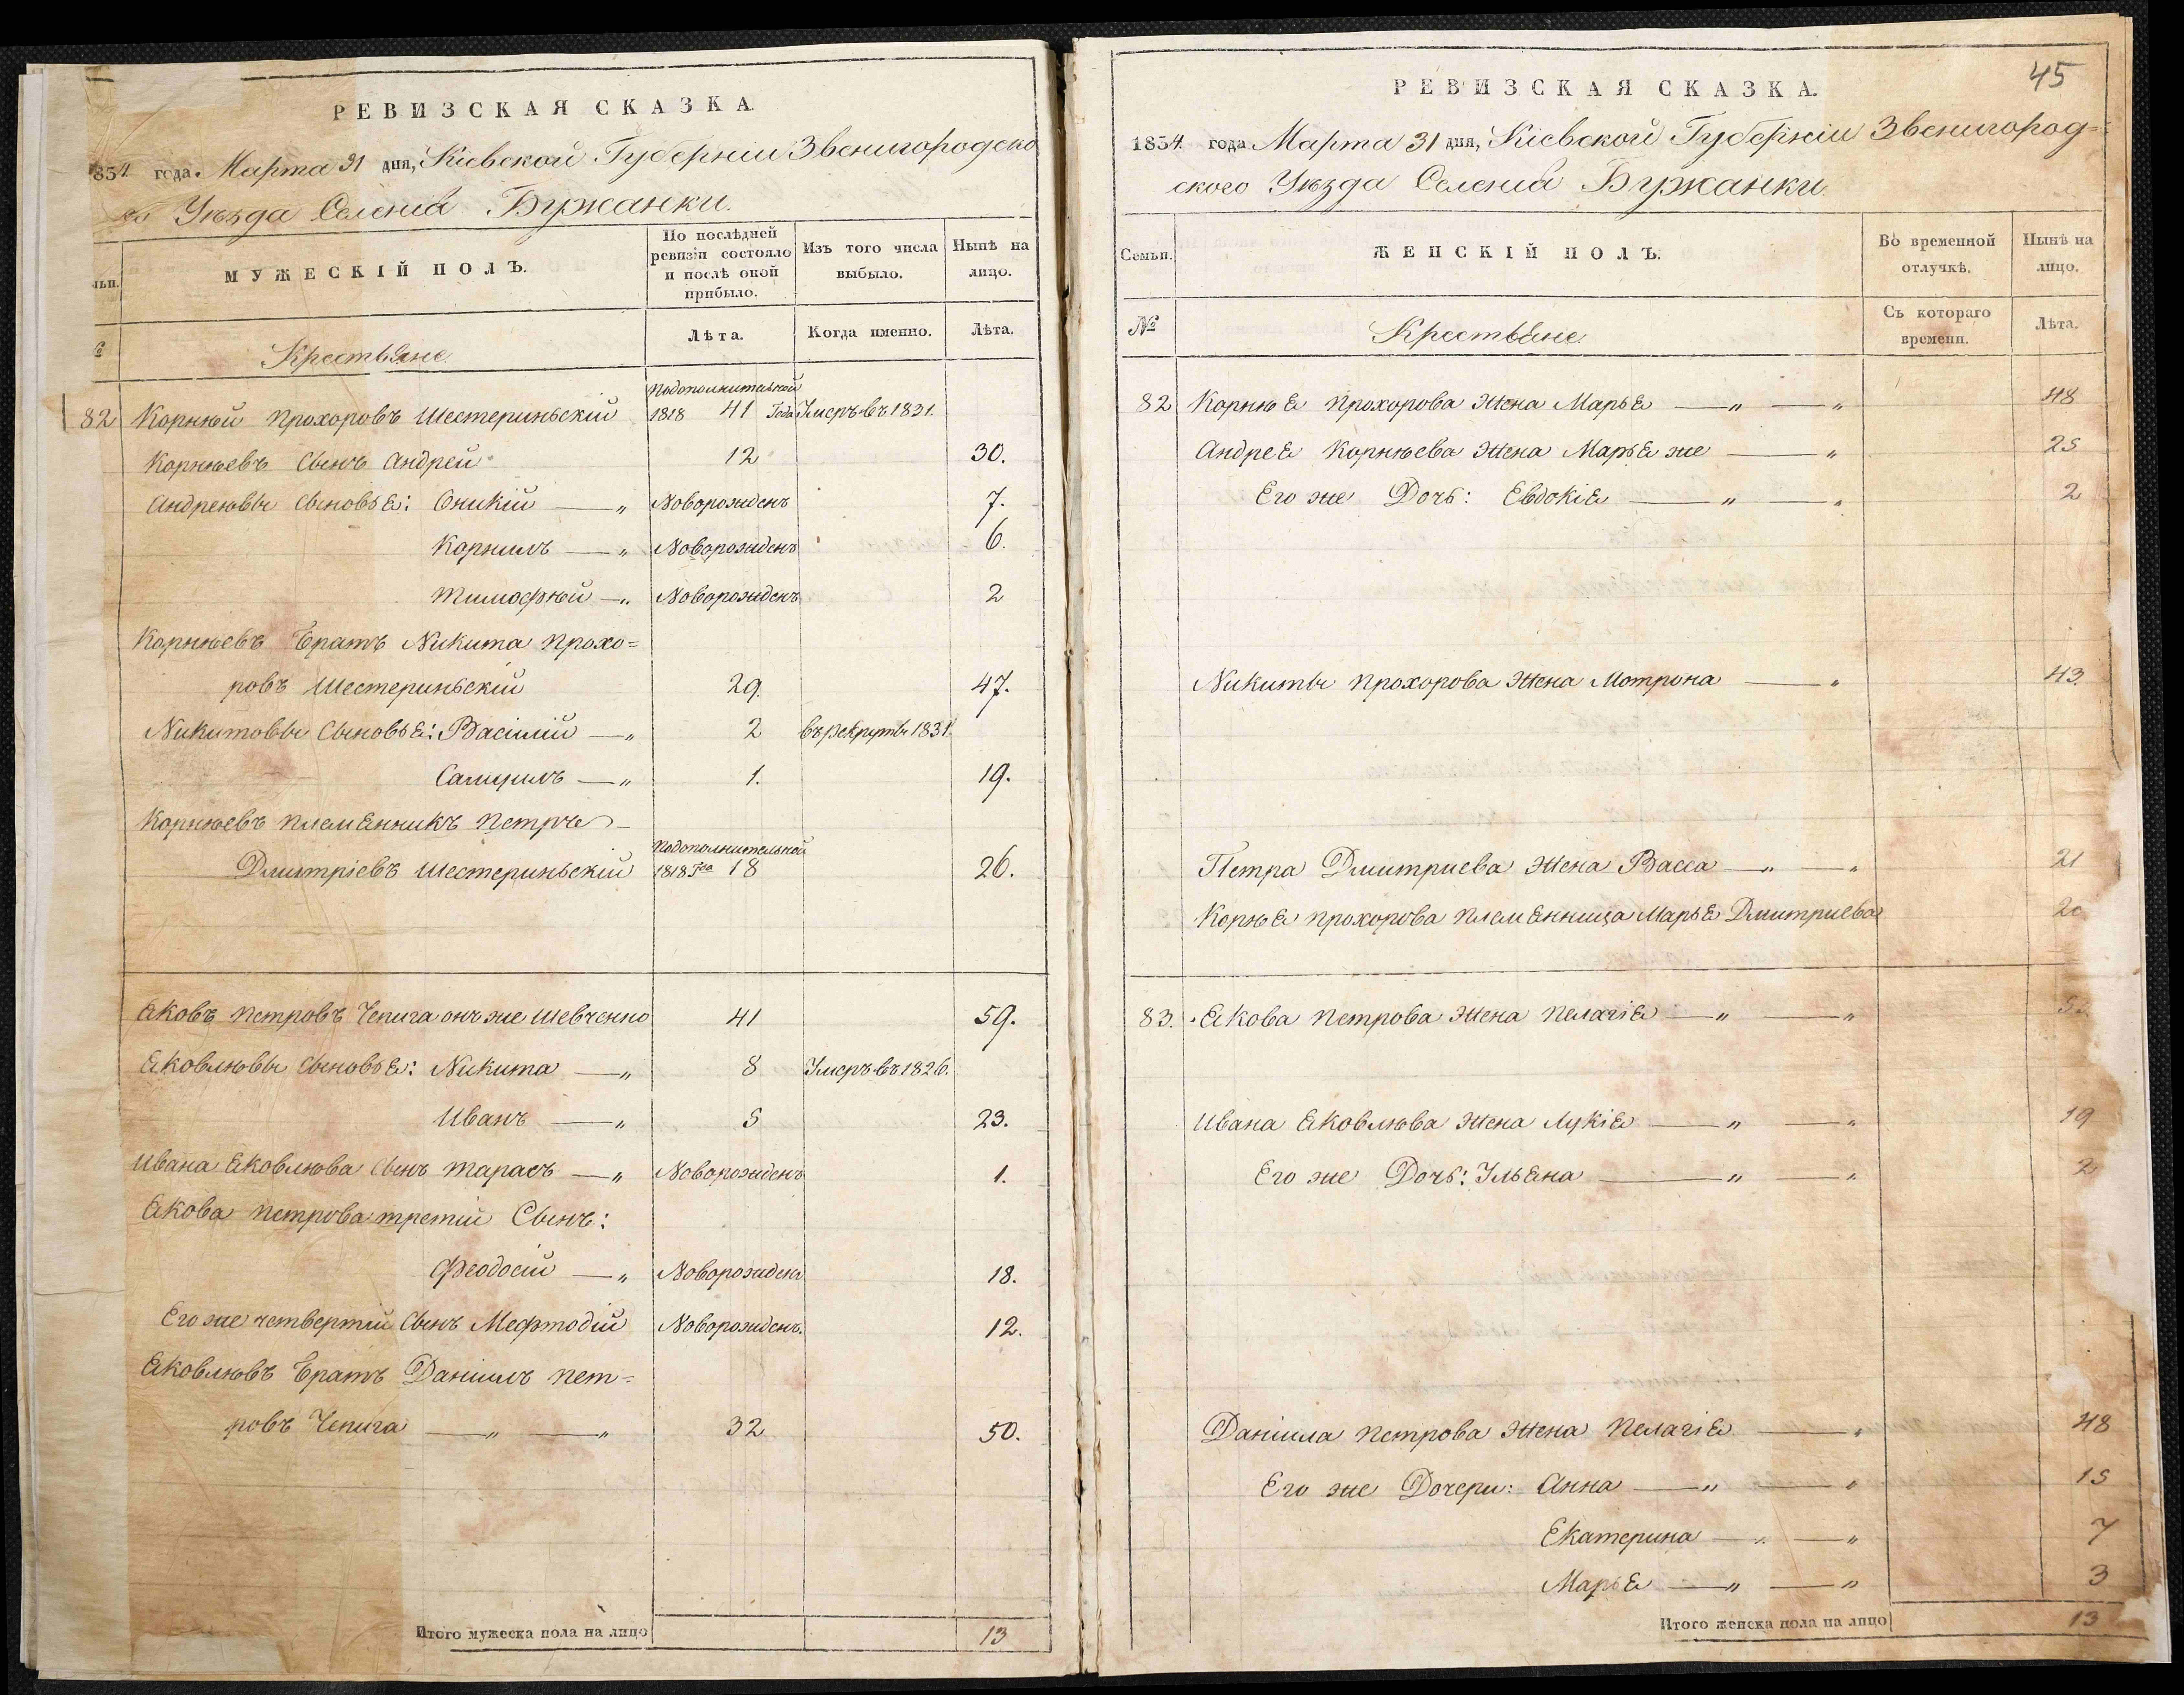 РЕВИЗСКАЯ СКАЗКА.
1834 года Марта 31 дня, Кіевской Губерніи Звенигородско
го Уѣзда Селенія Бужанки.
МУЖЕСКІЙ ПОЛЪ.
По послѣдней ревизіи состояло и послѣ оной прибыло.
Изъ того числа выбыло.
Нынѣ на лицо.
Лѣта.
Когда именно.
Лѣта.
Крестьяне
82 Корнѣй Прохоровъ Шестериньскій подополнительной 1818 Года 41 Умеръ въ 1831.
Корнѣевъ Сынъ Андрей 12 30.
Андреювы Сыновья: Оникій — „ Новорожденъ 7.
Корнилъ — „ Новорожденъ 6.
Тимофѣй — „ Новорожденъ 2
Корнѣевъ Братъ Никита Прохо=
ровъ Шестериньскій 29. 47.
Никитовы Сыновья: Васілій — „ 2 въ рекруты 1831.
Самуилъ — „ 1. 19.
Корнѣевъ племянникъ Петръ
Дмитріевъ Шестериньскій подополнительной 1818 Года 18 26.
Яковъ Петровъ Чепига онъ же Шевченко 41 59.
Яковлювы Сыновья: Никита — „ 8 Умеръ въ 1826.
Иванъ — „ 5 23.
Ивана Яковлюва Сынъ Тарасъ — „ Новорожденъ 1.
Якова Петрова третій Сынъ:
Феодосій — „ Новорожденъ 18.
Его же четвертій Сынъ Мефтодій Новорожденъ. 12.
Яковлювъ Братъ Даніилъ Пет=
ровъ Чепига — „ — „ 32 50.
Итого мужеска пола на лицо 13
45
РЕВИЗСКАЯ СКАЗКА.
1834 года Марта 31 дня, Кіевской Губерніи Звенигород=
ского Уѣзда Селенія Бужанки.
Семьи.
ЖЕНСКІЙ ПОЛЪ.
Во временной отлучкѣ.
Нынѣ на лицо.
№
Крестьяне
Съ котораго времени.
Лѣта.
82 Корнѣя Прохорова Жена Марья — „ — „ 48
Андрея Корнѣева Жена Марья же — „ 25
Его же Дочь: Евдокія — „ — „ 2
Никиты Прохорова Жена Мотрона — „ 43
Петра Дмитриева Жена Васса — „ — „ 21
Корнѣя Прохорова племянница Марья Дмитриева 20
83. Якова Петрова Жена Пелагія — „ — „
Ивана Яковлюва Жена Лукія — „ — „ 19
Его же Дочь: Ульяна — „ — „ 2
Даніила Петрова Жена Пелагія — „ 48
Его же Дочери: Анна — „ — „ 15
Екатерина — „ — „ 7
Марья — „ — „ 3
Итого женска пола на лицо 13